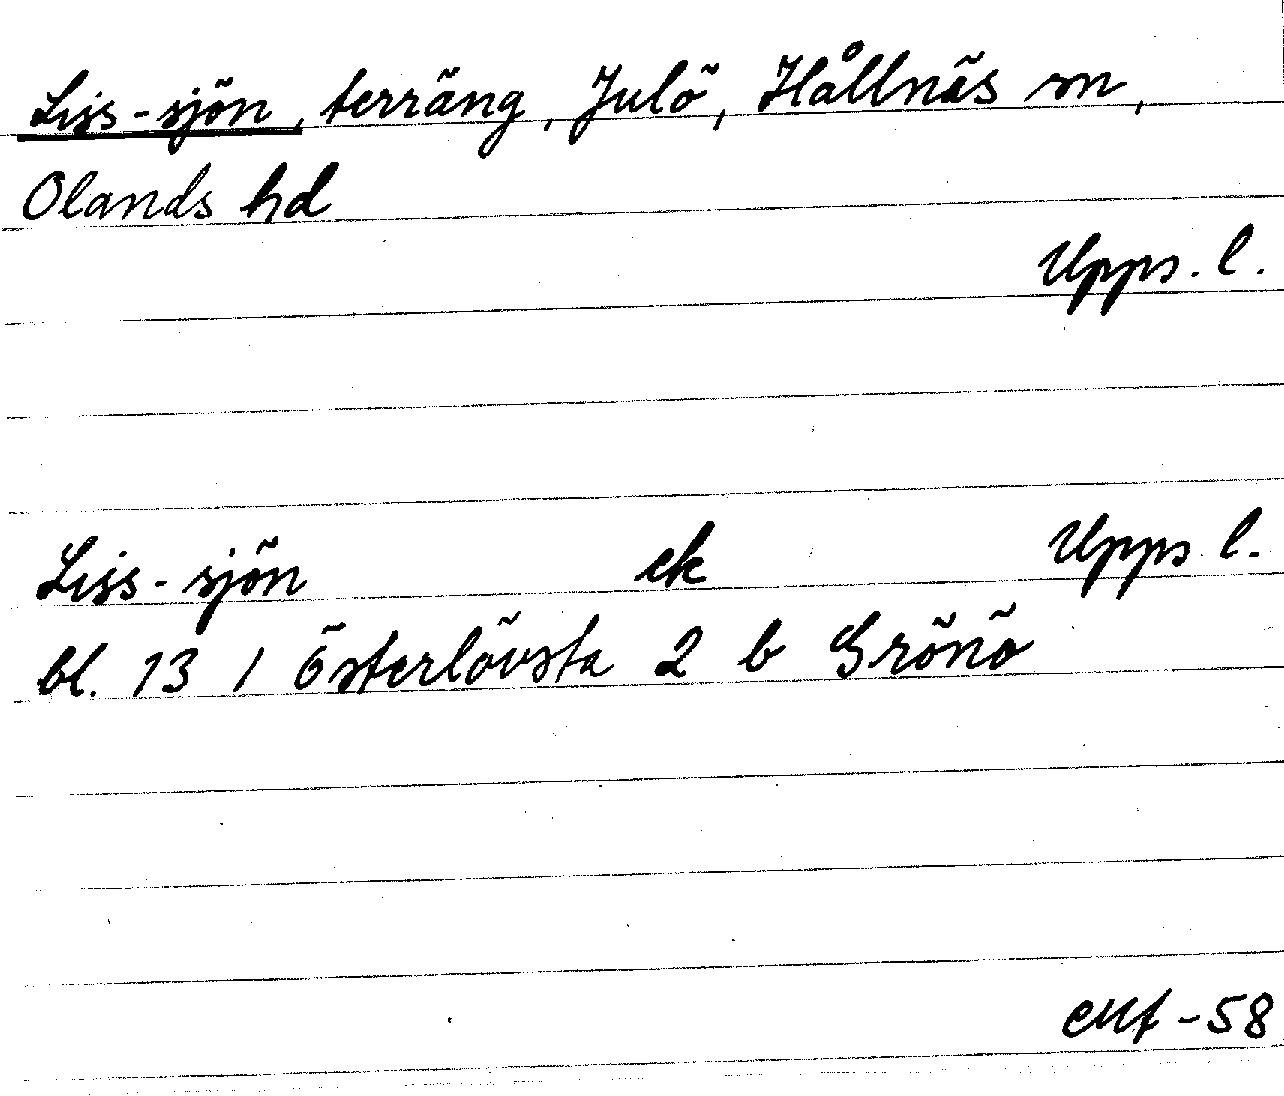 Liss-sjön, terräng, Julö, Hållnäs sn,
Olands hd
Upps. l.
Liss-sjön ek Upps l.
bl. 13 / Österlövsta 2 b Grönö
-58